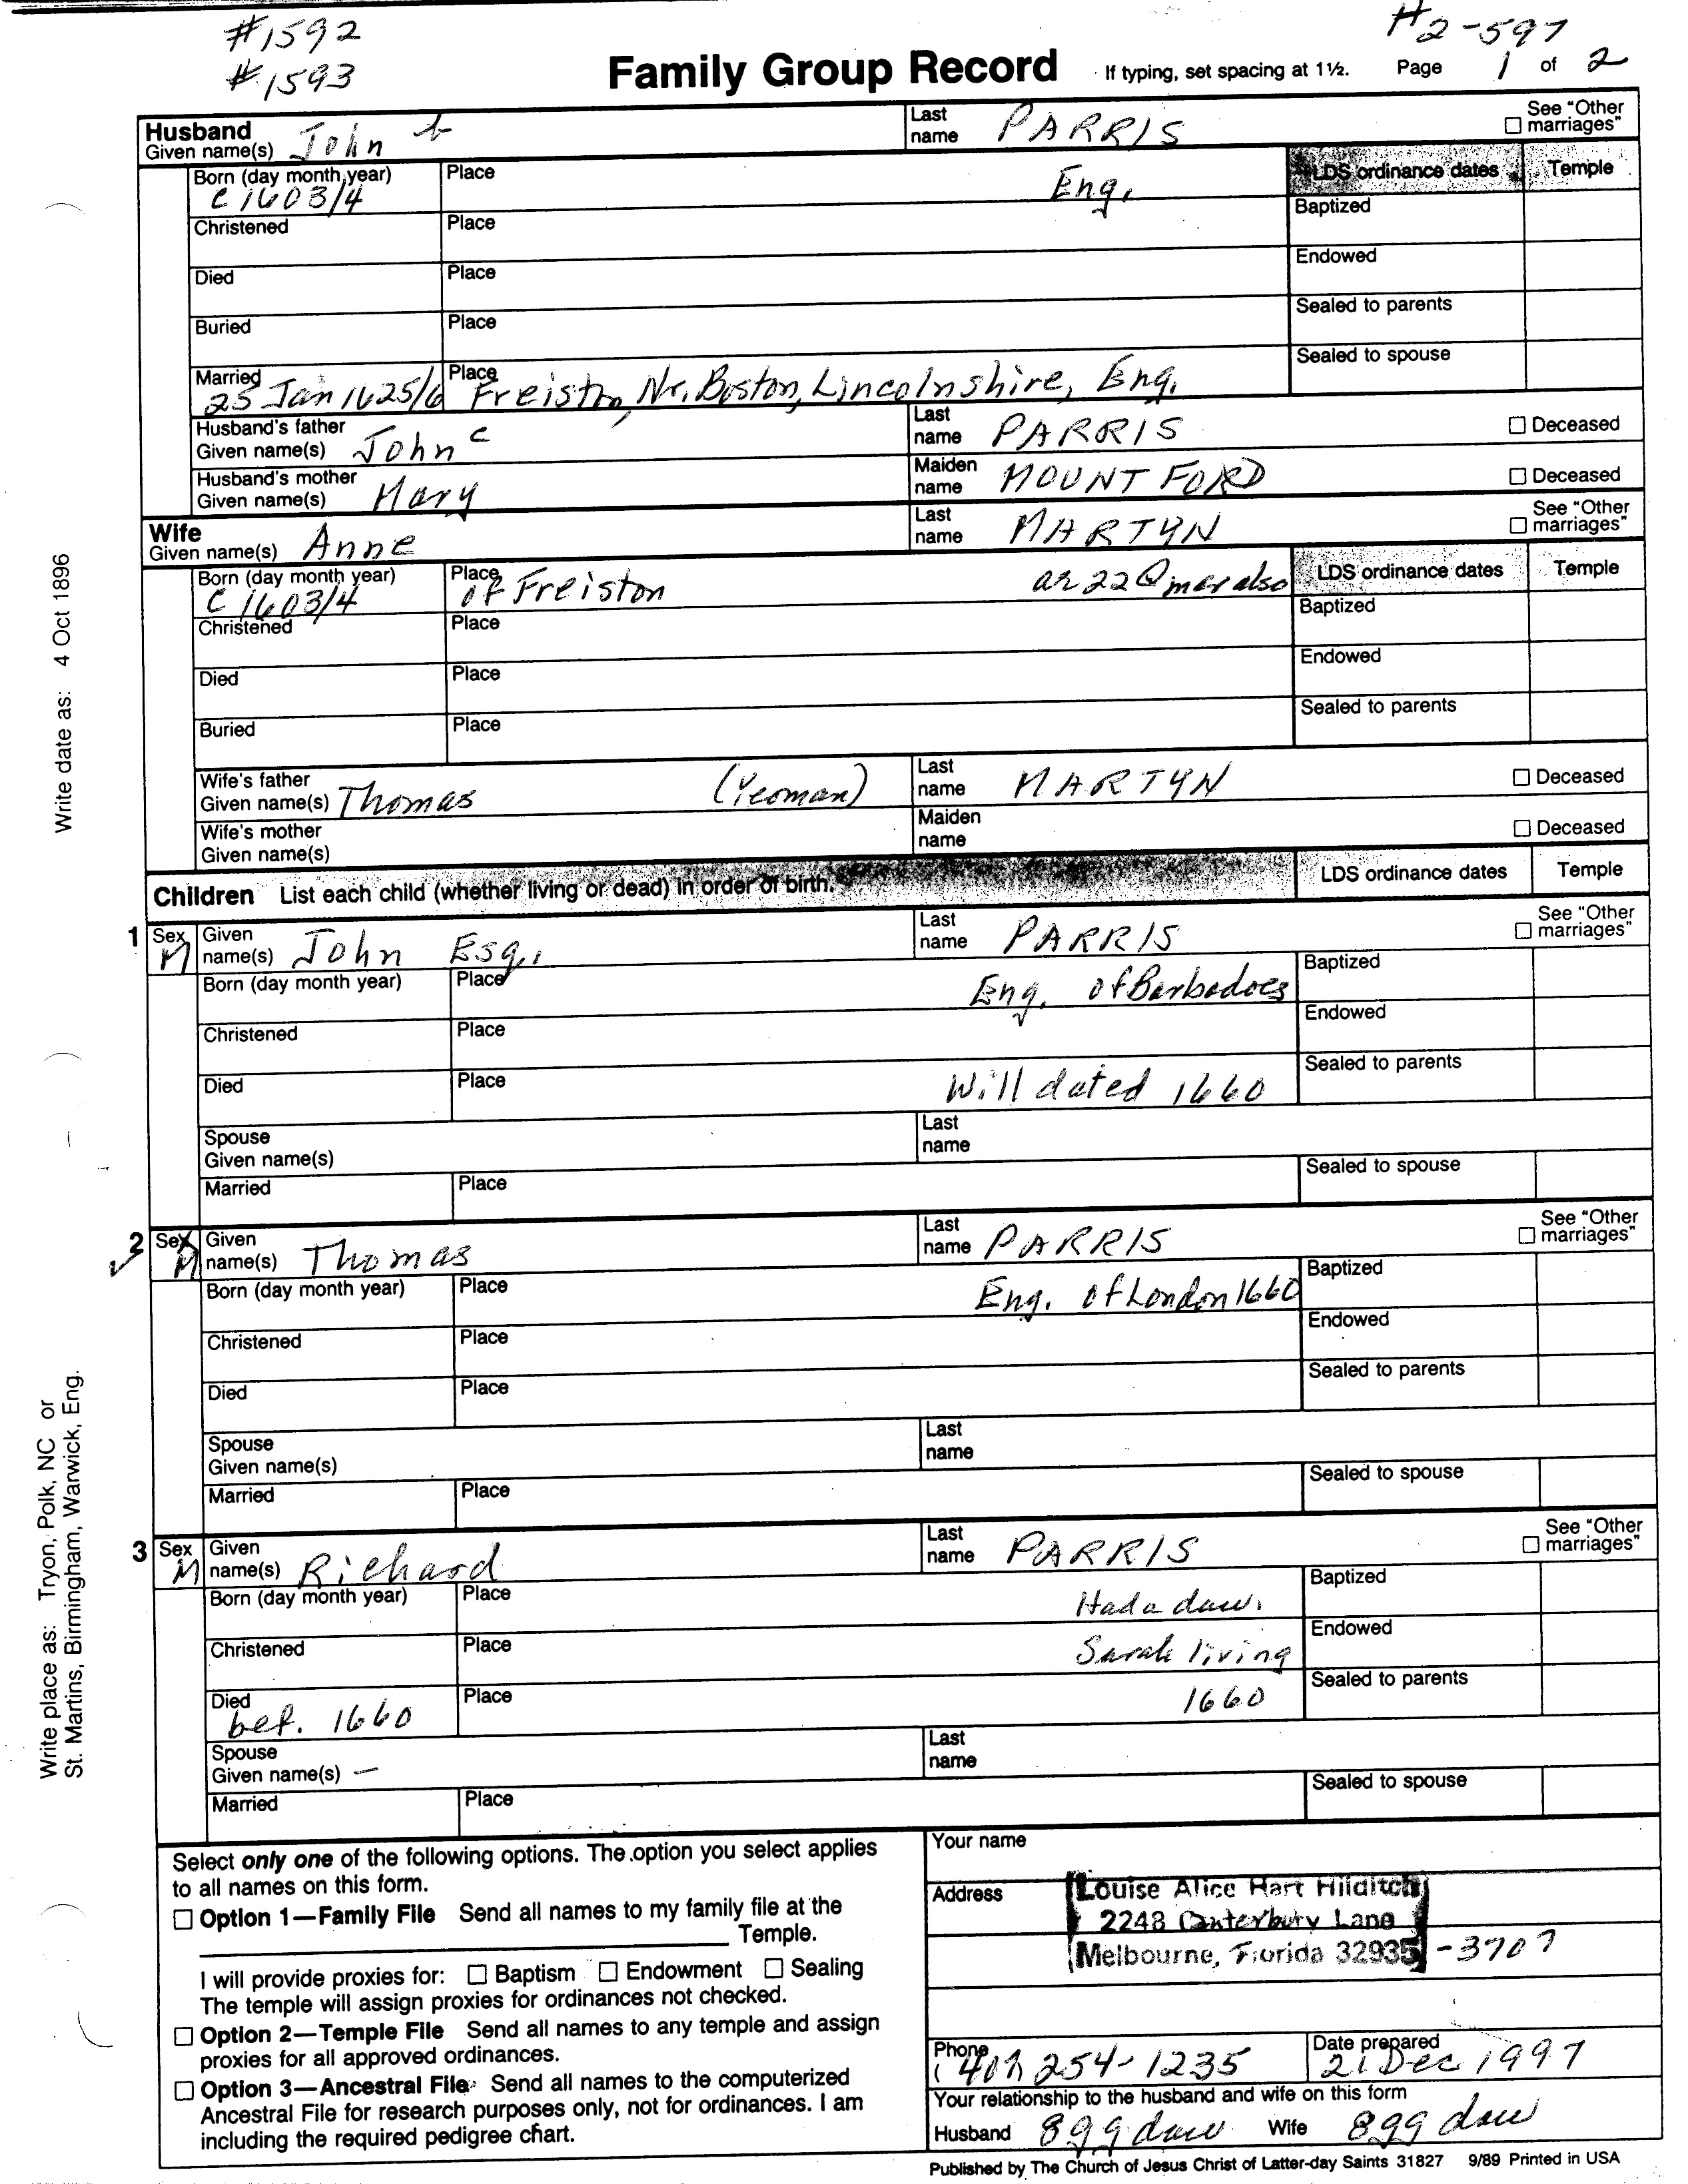 #1592
#1593
#2-597
Family Group Record If typing, set spacing at 1½. Page 1 of 2
Husband
Given name(s) John b
Last name PARRIS
See "Other marriages"
Born (day month year) c 1603/4
Place Eng.
LDS ordinance dates Temple
Christened Place
Baptized
Died Place
Endowed
Buried Place
Sealed to parents
Married 25 Jan 1625/6
Place Freiston, Nr. Boston, Lincolnshire, Eng.
Sealed to spouse
Husband's father
Given name(s) John c
Last name PARRIS
Deceased
Husband's mother
Given name(s) Mary
Maiden name MOUNTFORD
Deceased
Wife
Given name(s) Anne
Last name MARTYN
See "Other marriages"
Born (day month year) c 1603/4
Place of Freiston ae 22 @ mar also
LDS ordinance dates Temple
Christened Place
Baptized
Died Place
Endowed
Buried Place
Sealed to parents
Wife's father
Given name(s) Thomas (Yeoman)
Last name MARTYN
Deceased
Wife's mother
Given name(s)
Maiden name
Deceased
Children List each child (whether living or dead) in order of birth.
LDS ordinance dates Temple
1 Sex M Given name(s) John Esq.
Last name PARRIS
See "Other marriages"
Born (day month year)
Place Eng. of Barbadoes
Baptized
Christened Place
Endowed
Died Place Will dated 1660
Sealed to parents
Spouse
Given name(s)
Last name
Married Place
Sealed to spouse
2 Sex M Given name(s) Thomas
Last name PARRIS
See "Other marriages"
Born (day month year)
Place Eng. of London 1660
Baptized
Christened Place
Endowed
Died Place
Sealed to parents
Spouse
Given name(s)
Last name
Married Place
Sealed to spouse
3 Sex M Given name(s) Richard
Last name PARRIS
See "Other marriages"
Born (day month year)
Place Had a dau.
Baptized
Christened Place Sarah living
Endowed
Died bef. 1660
Place 1660
Sealed to parents
Spouse
Given name(s) –
Last name
Married Place
Sealed to spouse
Select only one of the following options. The option you select applies
to all names on this form.
Option 1—Family File Send all names to my family file at the
Temple.
I will provide proxies for: Baptism Endowment Sealing
The temple will assign proxies for ordinances not checked.
Option 2—Temple File Send all names to any temple and assign
proxies for all approved ordinances.
Option 3—Ancestral File Send all names to the computerized
Ancestral File for research purposes only, not for ordinances. I am
including the required pedigree chart.
Your name
Address
Louise Alice Hart Hilditch
2248 Canterbury Lane
Melbourne, Florida 32935 -3707
Phone (407 254-1235
Date prepared 21 Dec 1997
Your relationship to the husband and wife on this form
Husband 8gg dau Wife 8gg dau
Published by The Church of Jesus Christ of Latter-day Saints 31827 9/89 Printed in USA
Write date as: 4 Oct 1896
Write place as: Tryon, Polk, NC or
St. Martins, Birmingham, Warwick, Eng.